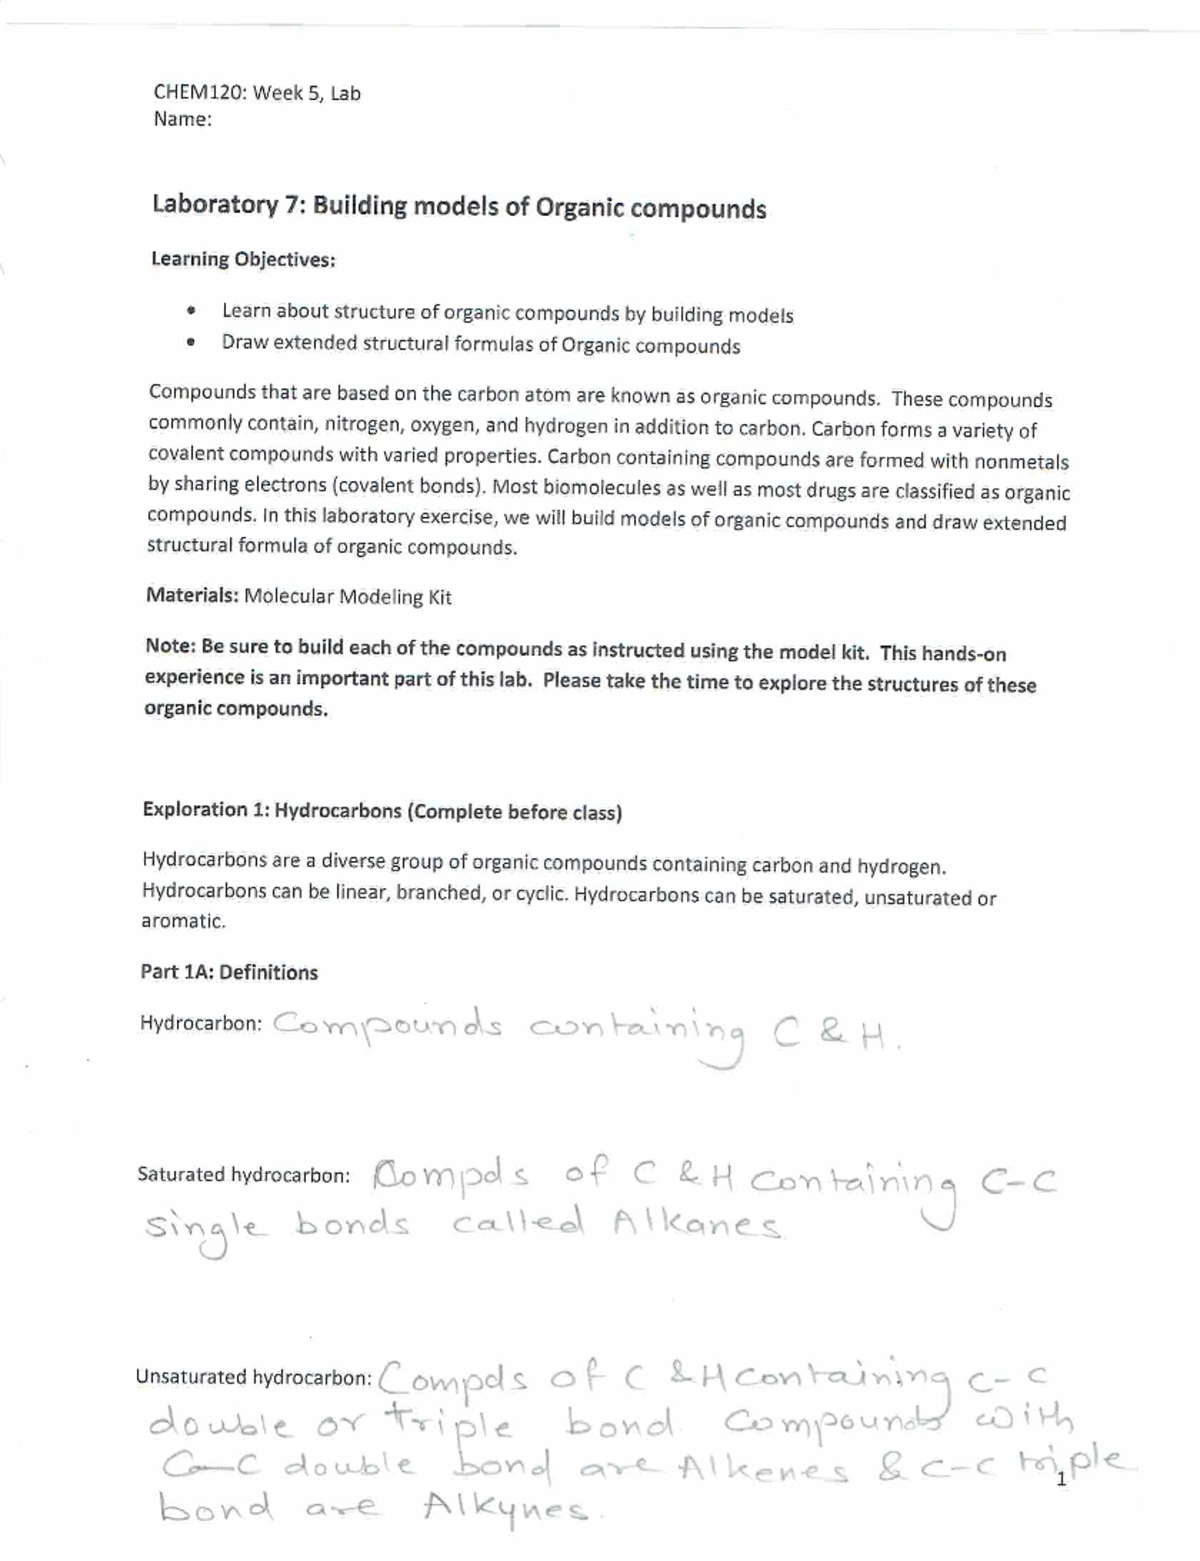 CHEM120: Week 5, Lab
Name:
Laboratory 7: Building models of Organic compounds
Learning Objectives:
• Learn about structure of organic compounds by building models
• Draw extended structural formulas of Organic compounds
Compounds that are based on the carbon atom are known as organic compounds. These compounds
commonly contain, nitrogen, oxygen, and hydrogen in addition to carbon. Carbon forms a variety of
covalent compounds with varied properties. Carbon containing compounds are formed with nonmetals
by sharing electrons (covalent bonds). Most biomolecules as well as most drugs are classified as organic
compounds. In this laboratory exercise, we will build models of organic compounds and draw extended
structural formula of organic compounds.
Materials: Molecular Modeling Kit
Note: Be sure to build each of the compounds as instructed using the model kit. This hands-on
experience is an important part of this lab. Please take the time to explore the structures of these
organic compounds.
Exploration 1: Hydrocarbons (Complete before class)
Hydrocarbons are a diverse group of organic compounds containing carbon and hydrogen.
Hydrocarbons can be linear, branched, or cyclic. Hydrocarbons can be saturated, unsaturated or
aromatic.
Part 1A: Definitions
Hydrocarbon: Compounds containing C & H.
Saturated hydrocarbon: Compds of C & H containing C-C
single bonds called Alkanes.
Unsaturated hydrocarbon: Compds of C & H containing C-C
double or triple bond. Compounds with
C-C double bond are Alkenes & C-C triple
bond are Alkynes.
1